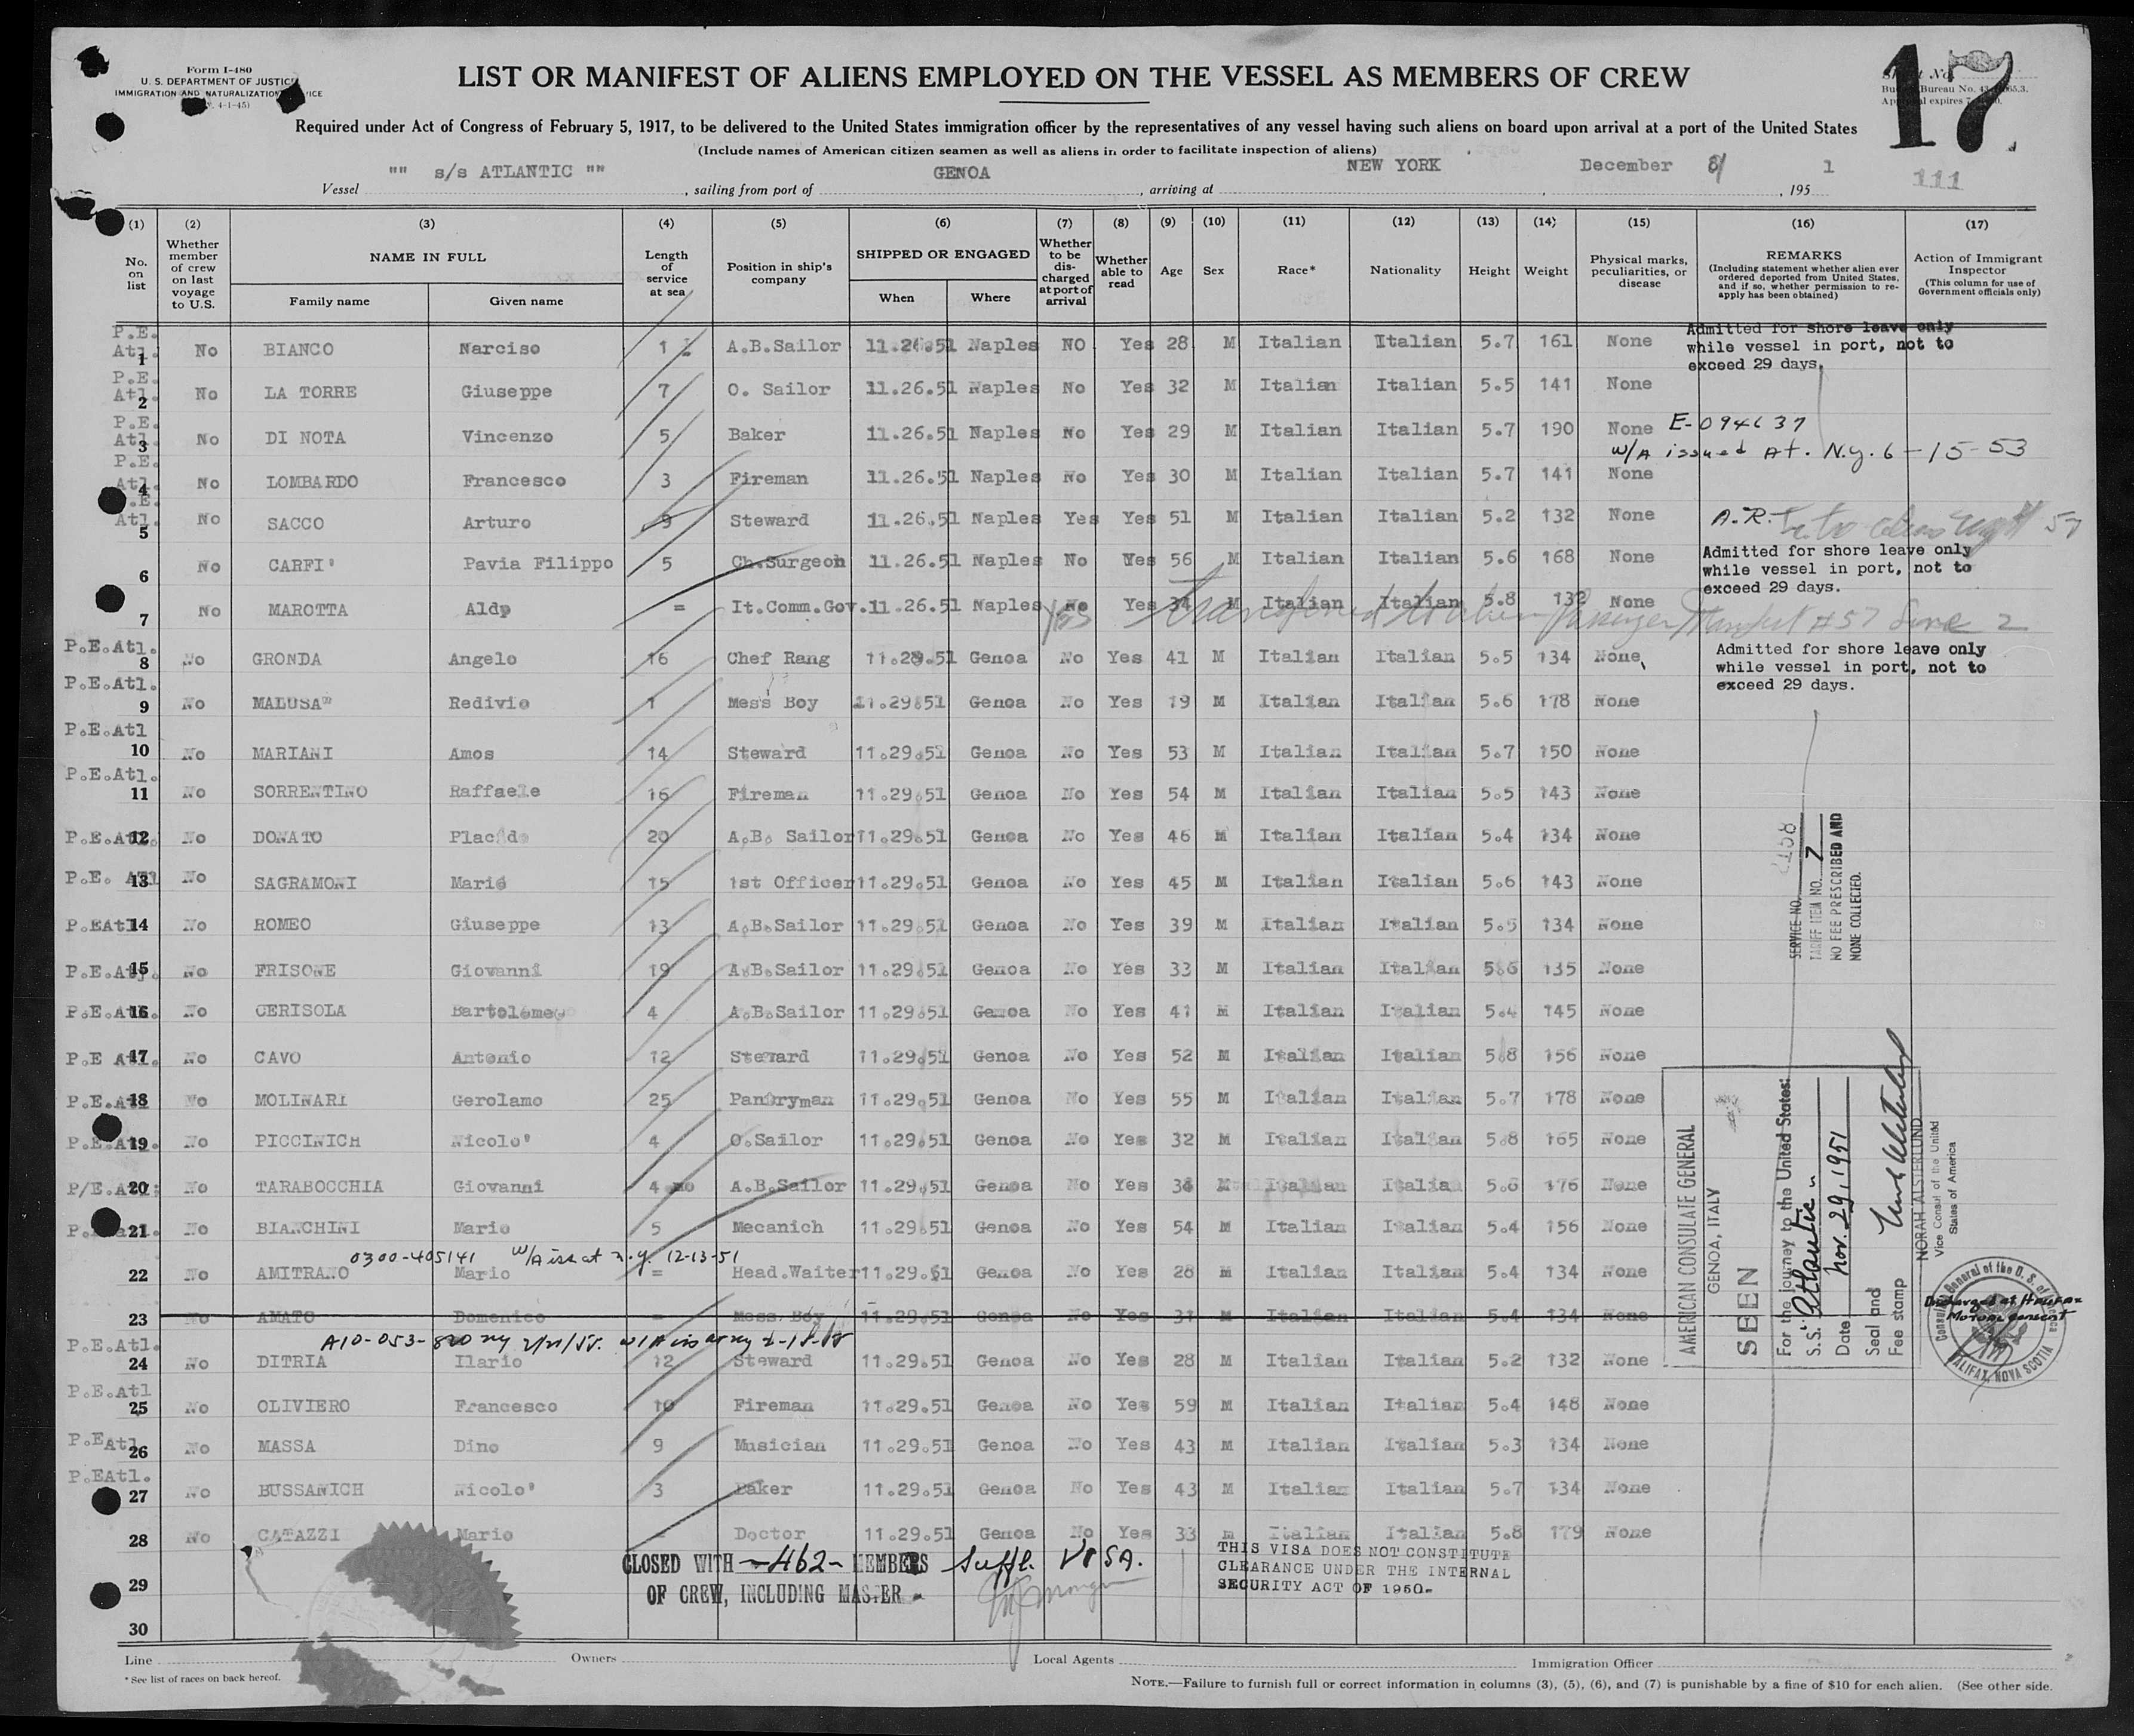 Form I-480
U. S. DEPARTMENT OF JUSTICE
IMMIGRATION AND NATURALIZATION
4-1-45)
LIST OR MANIFEST OF ALIENS EMPLOYED ON THE VESSEL AS MEMBERS OF CREW
17
Required under Act of Congress of February 5, 1917, to be delivered to the United States immigration officer by the representatives of any vessel having such aliens on board upon arrival at a port of the United States
(Include names of American citizen seamen as well as aliens in order to facilitate inspection of aliens)
Vessel "" s/s ATLANTIC "" , sailing from port of GENOA , arriving at NEW YORK , December 8 , 195 1
111
(1) (2) (3) (4) (5) (6) (7) (8) (9) (10) (11) (12) (13) (14) (15) (16) (17)
No. on list
Whether member of crew on last voyage to U.S.
NAME IN FULL
Family name Given name
Length of service at sea
Position in ship's company
SHIPPED OR ENGAGED
When Where
Whether to be discharged at port of arrival
Whether able to read
Age Sex Race* Nationality Height Weight
Physical marks, peculiarities, or disease
REMARKS
(Including statement whether alien ever ordered deported from United States, and if so, whether permission to reapply has been obtained)
Action of Immigrant Inspector
(This column for use of Government officials only)
P.E. Atl. 1 No BIANCO Narciso 1 A.B.Sailor 11.26.51 Naples NO Yes 28 M Italian Italian 5.7 161 None
Admitted for shore leave only
while vessel in port, not to
exceed 29 days.
P.E. Atl. 2 No LA TORRE Giuseppe 7 O. Sailor 11.26.51 Naples No Yes 32 M Italian Italian 5.5 141 None
P.E. Atl. 3 No DI NOTA Vincenzo 5 Baker 11.26.51 Naples No Yes 29 M Italian Italian 5.7 190 None E-094637
W/A issued At. N.y. 6-15-53
P.E. Atl. 4 No LOMBARDO Francesco 3 Fireman 11.26.51 Naples No Yes 30 M Italian Italian 5.7 141 None
P.E. Atl. 5 No SACCO Arturo 9 Steward 11.26.51 Naples Yes Yes 51 M Italian Italian 5.2 132 None A.R.
6 No CARFI' Pavia Filippo 5 Ch.Surgeon 11.26.51 Naples No Yes 56 M Italian Italian 5.6 168 None
Admitted for shore leave only
while vessel in port, not to
exceed 29 days.
7 No MAROTTA Aldo = It.Comm.Gov. 11.26.51 Naples No Yes 34 M Italian Italian 5.8 132 None
Yes Transferred to alien Passenger Manifest #57 Line 2
P.E.Atl. 8 No GRONDA Angelo 16 Chef Rang 11.29.51 Genoa No Yes 41 M Italian Italian 5.5 134 None
Admitted for shore leave only
while vessel in port, not to
exceed 29 days.
P.E.Atl. 9 No MALUSA" Redivio 1 Mess Boy 11.29.51 Genoa No Yes 19 M Italian Italian 5.6 178 None
P.E.Atl 10 No MARIANI Amos 14 Steward 11.29.51 Genoa No Yes 53 M Italian Italian 5.7 150 None
P.E.Atl. 11 No SORRENTINO Raffaele 16 Fireman 11.29.51 Genoa No Yes 54 M Italian Italian 5.5 143 None
P.E.Atl. 12 No DONATO Placido 20 A.B. Sailor 11.29.51 Genoa No Yes 46 M Italian Italian 5.4 134 None
P.E. Atl 13 No SAGRAMONI Mario 15 1st Officer 11.29.51 Genoa No Yes 45 M Italian Italian 5.6 143 None
P.EAtl 14 No ROMEO Giuseppe 13 A.B.Sailor 11.29.51 Genoa No Yes 39 M Italian Italian 5.5 134 None
P.E.Atl. 15 No FRISONE Giovanni 19 A.B.Sailor 11.29.51 Genoa No Yes 33 M Italian Italian 5.6 135 None
P.E.Atl. 16 No CERISOLA Bartolomeo 4 A.B.Sailor 11.29.51 Genoa No Yes 41 M Italian Italian 5.4 145 None
P.E Atl. 17 No CAVO Antonio 12 Steward 11.29.51 Genoa No Yes 52 M Italian Italian 5.8 156 None
P.E.Atl 18 No MOLINARI Gerolamo 25 Pantryman 11.29.51 Genoa No Yes 55 M Italian Italian 5.7 178 None
P.E.Atl. 19 No PICCINICH Nicolo' 4 O.Sailor 11.29.51 Genoa No Yes 32 M Italian Italian 5.8 165 None
P/E.Atl. 20 No TARABOCCHIA Giovanni 4 A.B.Sailor 11.29.51 Genoa No Yes M Italian Italia 5.6 176 None
21 No BIANCHINI Mario 5 Mecanich 11.29.51 Genoa No Yes 54 M Italian Italian 5.4 156 None
0300-405141 W/A iss at n.y. 12-13-51
22 No AMITRANO Mario = Head.Waiter 11.29.51 Genoa No Yes 28 M Italian Italian 5.4 134 None
23 No AMATO Domenico = Mess. Boy 11.29.51 Genoa No Yes 31 M Italian Italian 5.4 134 None
Discharged at Halifax
Mutual Consent
P.E.Atl. 24 No DITRIA Ilario 12 Steward 11.29.51 Genoa No Yes 28 M Italian Italian 5.2 132 None
P.E.Atl 25 No OLIVIERO Francesco 10 Fireman 11.29.51 Genoa No Yes 59 M Italian Italian 5.4 148 None
P.EAtl 26 No MASSA Dino 9 Musician 11.29.51 Genoa No Yes 43 M Italian Italian 5.3 134 None
P.EAtl. 27 No BUSSANICH Nicolo' 3 Baker 11.29.51 Genoa No Yes 43 M Italian Italian 5.7 134 None
28 No CATAZZI Mario - Doctor 11.29.51 Genoa No Yes 33 m Italian Italian 5.8 179 None
29
30
CLOSED WITH -462- MEMBERS
OF CREW, INCLUDING MASTER
Suppl. VISA.
THIS VISA DOES NOT CONSTITUTE
CLEARANCE UNDER THE INTERNAL
SECURITY ACT OF 1950-
SERVICE NO.
TARIFF ITEM NO. 7
NO FEE PRESCRIBED AND
NONE COLLECTED.
AMERICAN CONSULATE GENERAL
GENOA, ITALY
SEEN
For the journey to the United States:
S.S. "Atlantic"
Date Nov. 29, 1951
Seal and
Fee stamp
NORAH ALSTERLUND
Vice Consul of the United
States of America
Consulate General of the U. S. of America
HALIFAX, NOVA SCOTIA
Line Owners Local Agents Immigration Officer
* See list of races on back hereof.
NOTE.—Failure to furnish full or correct information in columns (3), (5), (6), and (7) is punishable by a fine of $10 for each alien. (See other side.